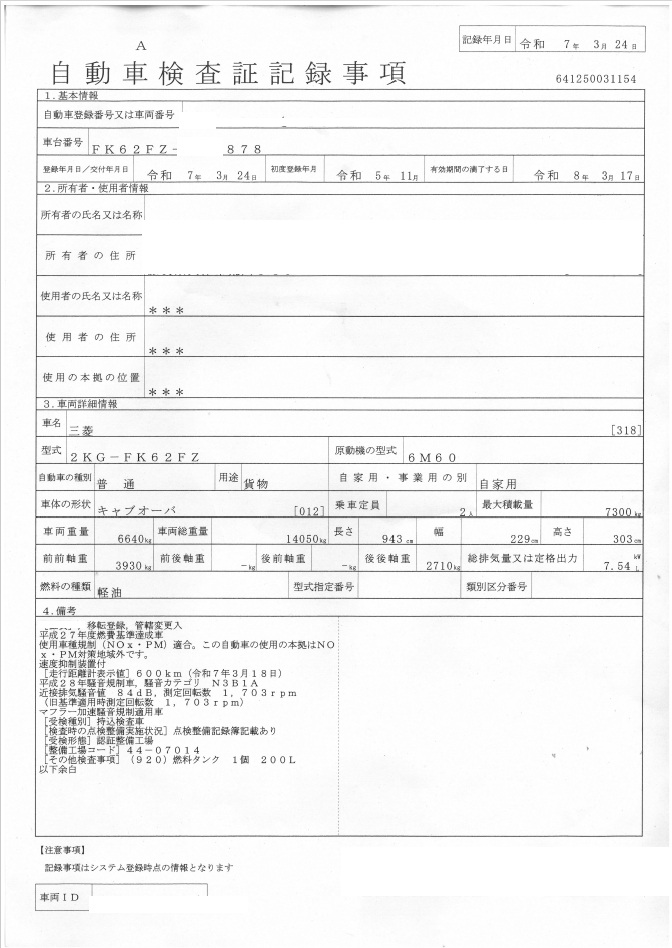 記録年月日 令和 7年 3月 24日
A
自動車検査証記録事項
641250031154
1.基本情報
自動車登録番号又は車両番号
車台番号 FK62FZ- 878
登録年月日/交付年月日 令和 7年 3月 24日 初度登録年月 令和 5年 11月 有効期間の満了する日 令和 8年 3月 17日
2.所有者・使用者情報
所有者の氏名又は名称
所有者の住所
使用者の氏名又は名称 ***
使用者の住所 ***
使用の本拠の位置 ***
3.車両詳細情報
車名 三菱 [318]
型式 2KG-FK62FZ 原動機の型式 6M60
自動車の種別 普通 用途 貨物 自家用・事業用の別 自家用
車体の形状 キャブオーバ [012] 乗車定員 2人 最大積載量 7300kg
車両重量 6640kg 車両総重量 14050kg 長さ 943cm 幅 229cm 高さ 303cm
前前軸重 3930kg 前後軸重 -kg 後前軸重 -kg 後後軸重 2710kg 総排気量又は定格出力 7.54 kW L
燃料の種類 軽油 型式指定番号 類別区分番号
4.備考
,移転登録,管轄変更入
平成27年度燃費基準達成車
使用車種規制(NOx・PM)適合。この自動車の使用の本拠はNO
x・PM対策地域外です。
速度抑制装置付
[走行距離計表示値]600km(令和7年3月18日)
平成28年騒音規制車,騒音カテゴリ N3B1A
近接排気騒音値 84dB,測定回転数 1,703rpm
(旧基準適用時測定回転数 1,703rpm)
マフラー加速騒音規制適用車
[受検種別]持込検査車
[検査時の点検整備実施状況]点検整備記録簿記載あり
[受検形態]認証整備工場
[整備工場コード]44-07014
[その他検査事項](920)燃料タンク 1個 200L
以下余白
【注意事項】
記録事項はシステム登録時点の情報となります
車両ID